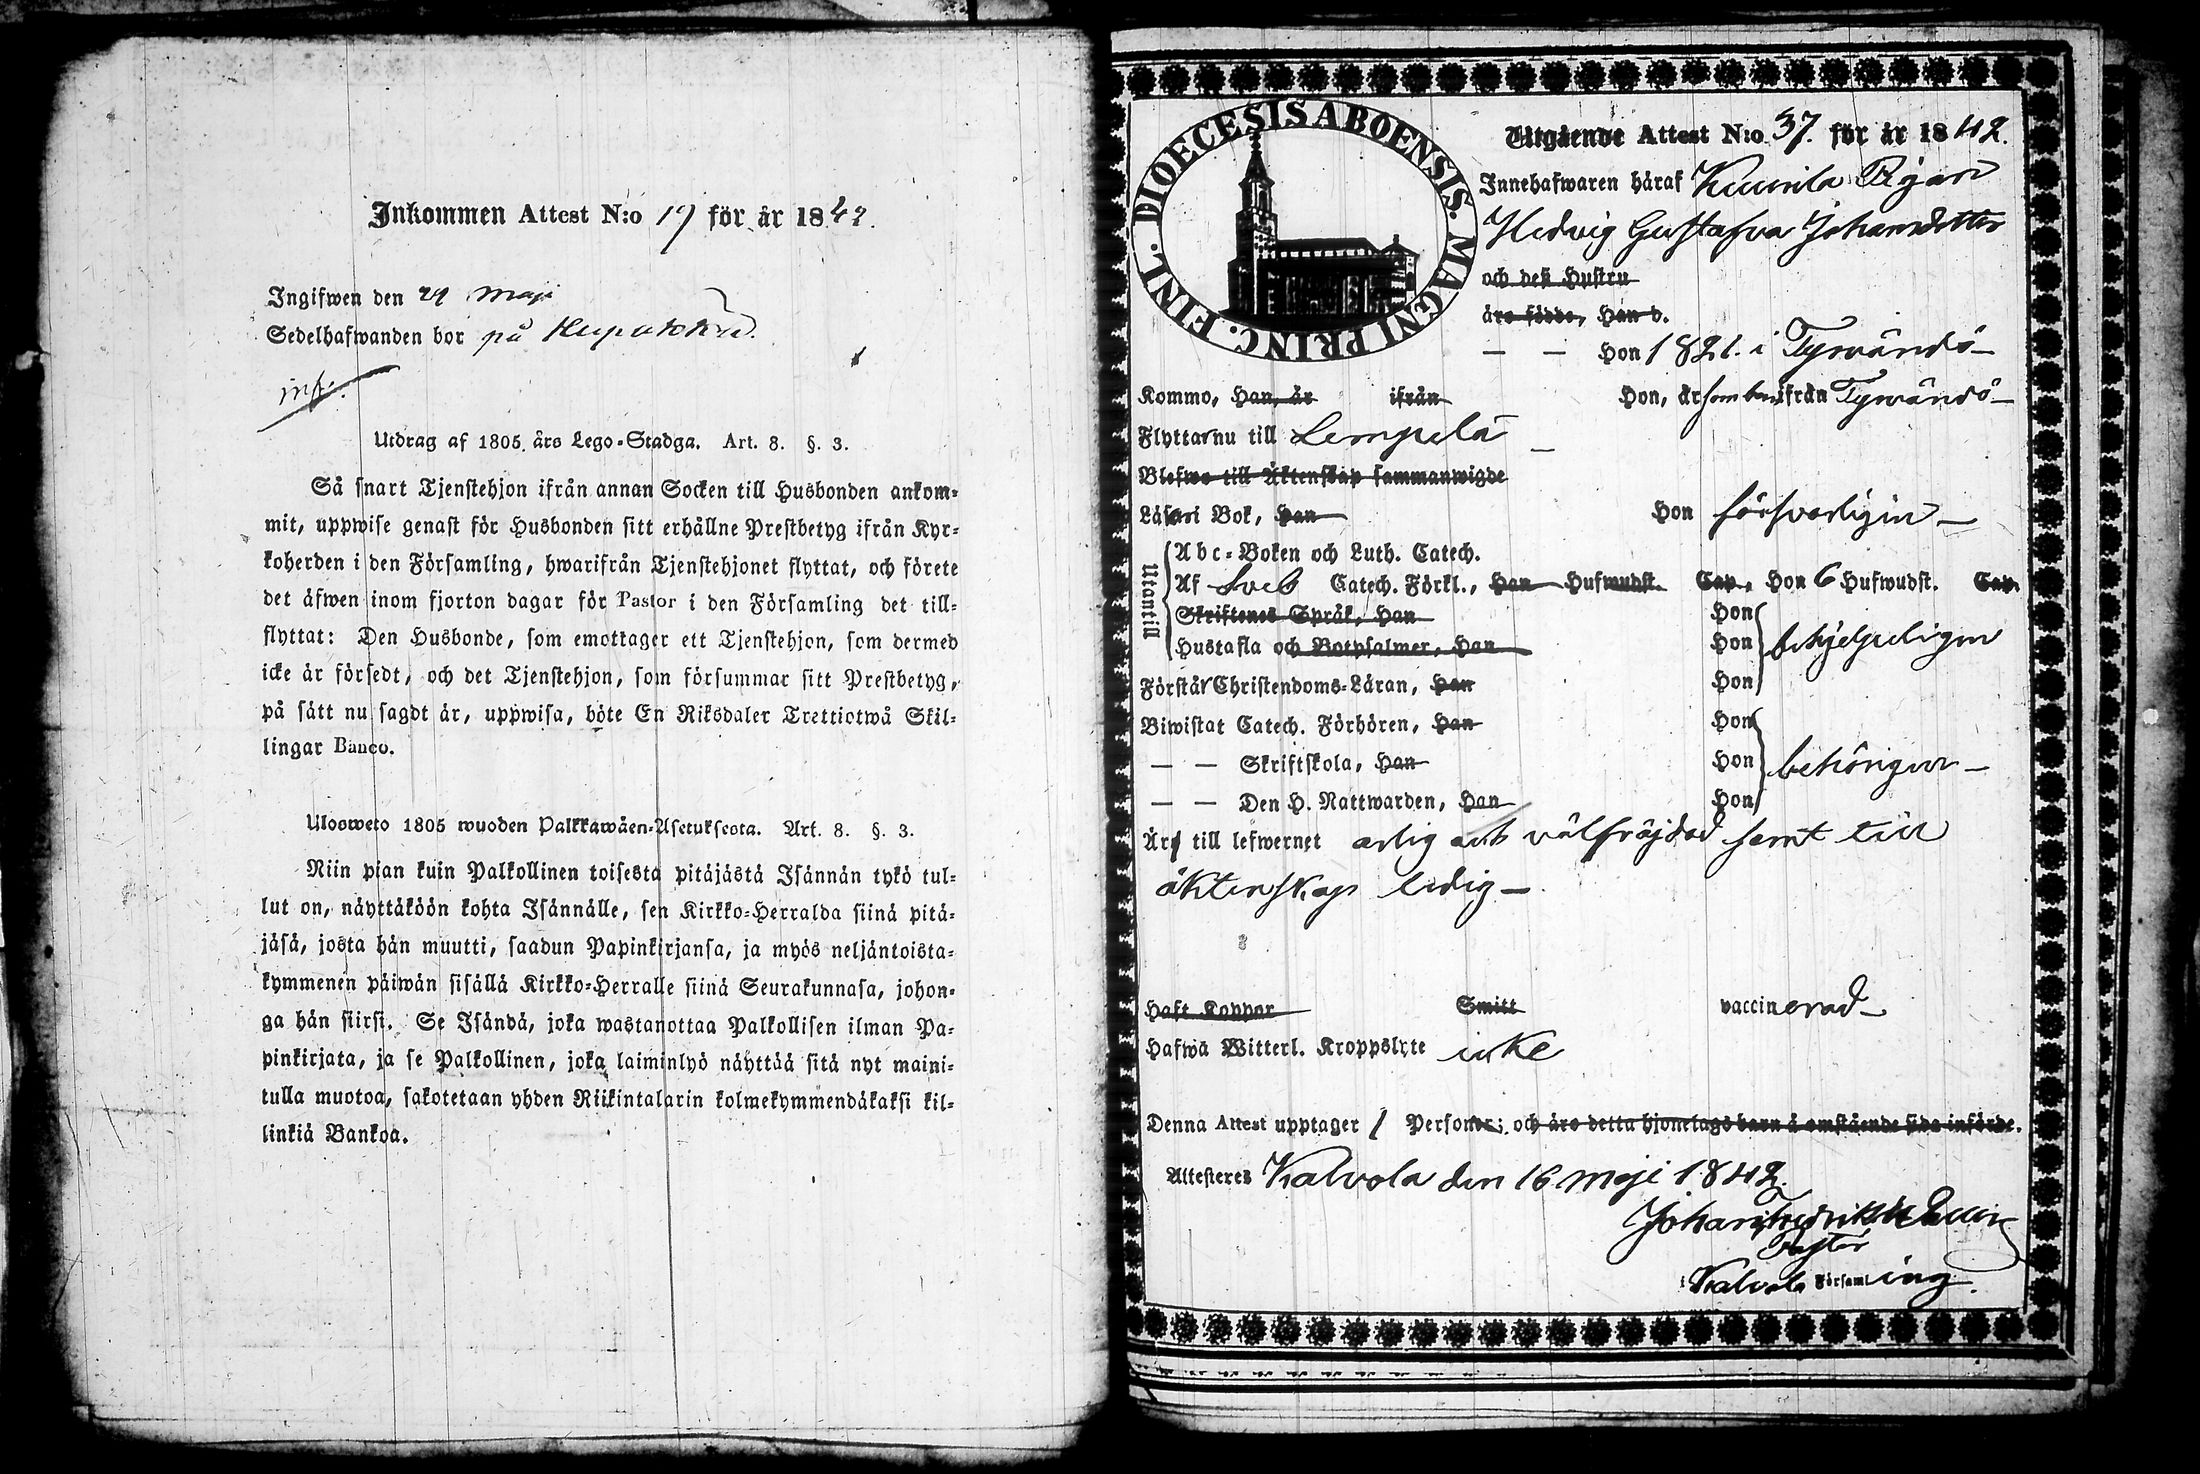 Inkommen Attest N:o 19 för år 1842.
Ingifwen den 29 maji
Sedelhafwanden bor på
inf:
Utdrag af 1805. års Lego-Stadga. Art. 8. §. 3.
Så snart Tjenstehjon ifrån annan Socken till Husbonden ankom-
mit, uppwise genast för Husbonden sitt erhållne Prestbetyg ifrån Kyr-
koherden i den Församling, hwarifrån Tjenstehjonet flyttat, och förete
det äfwen inom fjorton dagar för Pastor i den Församling det till-
flyttat: Den Husbonde, som emottager ett Tjenstehjon, som dermed
icke är försedt, och det Tjenstehjon, som försummar sitt Prestbetyg,
på sätt nu sagdt är, uppwisa, böte En Riksdaler Trettiotwå Skil-
lingar Banco.
Ulosweto 1805 wuoden Palkkawäen-Asetuksesta. Art. 8. §. 3.
Niin pian kuin Palkollinen toisesta pitäjästä Isännän tykö tul-
lut on, näyttäköön kohta Isännälle, sen Kirkko-Herralda siinä pitä-
jäsä, josta hän muutti, saadun Papinkirjansa, ja myös neljäntoista-
kymmenen päiwän sisällä Kirkko-Herralle siinä Seurakunnasa, johon-
ga hän siirsi. Se Isändä, joka wastanottaa Palkollisen ilman Pa-
pinkirjata, ja se Palkollinen, joka laiminlyö näyttää sitä nyt maini-
tulla muotoa, sakotetaan yhden Riikintalarin kolmekymmendäkaksi kil-
linkiä Bankoa.
DIOECESIS ABOENSIS. MAGNI PRINC. FINL.
Utgående Attest N:o 37. för år 1842.
Innehafwaren häraf Kuurila Pigan
Hedvig Gustafva Johansdotter
och deß Hustru
äro födde, Han d.
— — Hon 1821. i Tyrvändö —
Kommo, Han, år ifrån Hon, år som barn ifrån Tyrvändö —
Flyttar nu till Lempelä —
Blefwo till Äktenskap sammanwigde
Läser i Bok, Han Hon försvarligen —
Utantill
Abc-Boken och Luth. Catech.
Af Sveb Catech. Förkl., Han Hufwudst. Cap., Hon 6 Hufwudst. Cap.
Skriftenes Språk, Han Hon
Hustafla och Botpsalmer, Han Hon behjelpeligen
Förstår Christendoms-Läran, Han Hon
Biwistat Catech. Förhören, Han Hon
— — Skriftskola, Han Hon behörigen —
— — Den H. Nattwarden, Han Hon
Är till lefwernet ärlig och välfräjdad samt till
äktenskap ledig —
Haft Koppor Smitt vaccinerad —
Hafwa Witterl. Kroppslyte icke
Denna Attest upptager 1 Personer; och äro detta hjonelags barn å omstående sida införde.
Attesteras Kalvola den 16 maji 1842.
Johan Fredrik
Pastor
i Kalvola Församling.